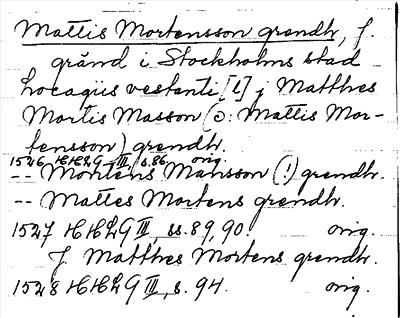 Mattis Mortensson grendh, f.
gränd i Stockholms stad
Locagiis vestanti [l] j Matthes
Mortis Masson (ɔ: Mattis Mor-
tensson) grendh.
1526 HH2G III, s.86 orig.
-- Mortens Månsson (!) grendh.
-- Mattes Mortens grendh.
1527 HH2G III, ss. 89, 90. orig.
J Matthes Mortens grendh.
1528 HH2G III, s. 94. orig.